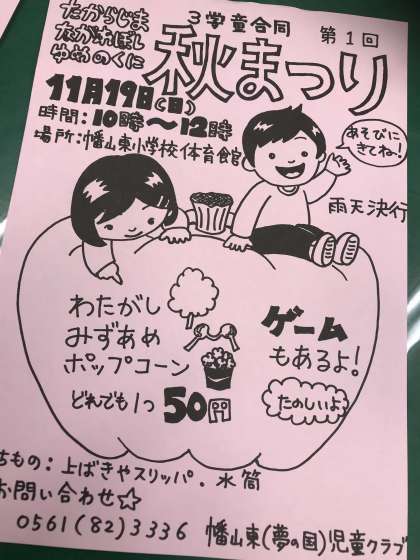 たからじま
ながれぼし
ゆめのくに
3学童合同
第1回
秋まつり
11月19日(日)
時間:10時～12時
場所:幡山東小学校体育館
あそびに
きてね!
雨天決行
わたがし
みずあめ
ポップコーン
どれでも1つ
50円
ゲーム
もあるよ!
たのしいよ
ちもの:上ばきやスリッパ.水筒
お問い合わせ☆
0561(82)3336 幡山東(夢の国)児童クラブ